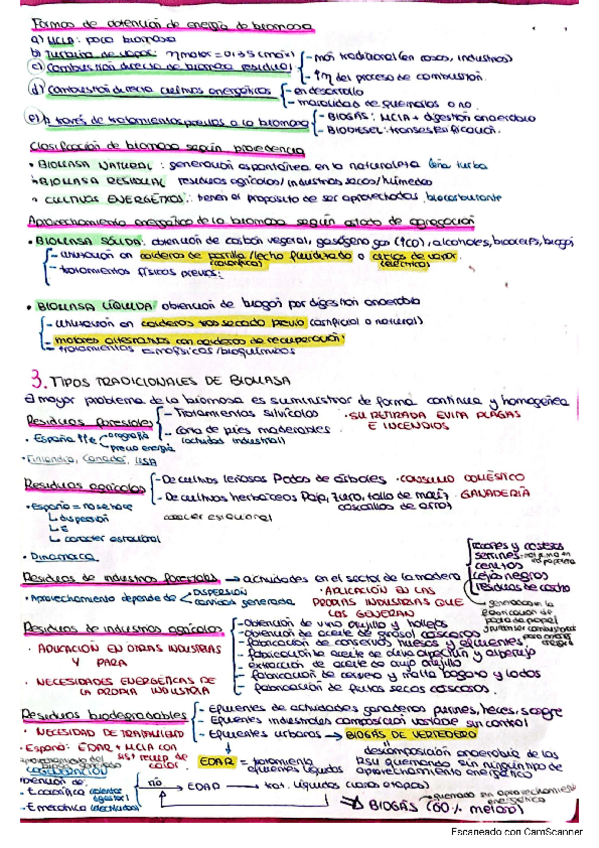 Formas de obtención de energía de biomasa
a) MCIA: poca biomasa
b) Turbina de vapor: ηmotor = 0'35 (máx)
c) Combustión directa de biomasa residual
- más tradicional (en casas, industrias)
- ↑η del proceso de combustión.
d) Combustión directa cultivos energéticos
- en desarrollo
- marcalidad de quemarlos o no.
e) A través de tratamientos previos a la biomasa
- BIOGÁS: MCIA + digestión anaerobia
- BIODIESEL: transesterificación.
Clasificación de biomasa según procedencia
• BIOMASA NATURAL: generación espontánea en la naturaleza leña turba
• BIOMASA RESIDUAL residuos agrícolas/industrias secos/húmedos
• CULTIVOS ENERGÉTICOS: tienen el propósito de ser aprovechados biocarburante
Aprovechamiento energético de la biomasa según estado de agregación
• BIOMASA SÓLIDA: obtención de carbón vegetal, gasógeno gas (↑CO), alcoholes, bioaceites, biogás
- utilización en calderas de parrilla/lecho fluidizado o ciclos de vapor.
(calorífica) (eléctrica)
- tratamientos físicos previos:
• BIOMASA LÍQUIDA obtención de biogás por digestión anaerobia
- utilización en calderas tras secado previo (artificial o natural)
- motores alternativos con calderas de recuperación
- tratamientos fisicoquímicos/bioquímicos
3. TIPOS TRADICIONALES DE BIOMASA
El mayor problema de la biomasa es suministrar de forma continua y homogénea
Residuos forestales
- Tratamientos silvícolas
- Corta de pies maderables
(actividad industrial)
• SU RETIRADA EVITA PLAGAS
E INCENDIOS
• España ↑↑€
orografía
previo energía
• Finlandia, Canadá, USA
Residuos agrícolas
- De cultivos leñosos Podas de árboles • CONSUMO DOMÉSTICO
- De cultivos herbáceos Paja, zuro, tallo de maíz, • GANADERÍA
cascarillas de arroz
• España = no se hace
↳ dispersión
↳ €
↳ carácter estacional
carácter estacional
• Dinamarca
Residuos de industrias forestales → actividades en el sector de la madera
recortes y costeros
serrines
centros
lejías negras
residuos de corcho
• Aprovechamiento depende de
DISPERSIÓN
cantidad generada
• APLICACIÓN EN LAS
PROPIAS INDUSTRIAS QUE
LAS GENERAN
generadas en la
fabricación de
pasta de papel
Residuos de industrias agrícolas
• APLICACIÓN EN OTRAS INDUSTRIAS
Y PARA
• NECESIDADES ENERGÉTICAS DE
LA PROPIA INDUSTRIA
- Obtención de vino orujillo y hollejos
- Obtención de aceite de girasol cáscaras
- fabricación de conservas huesos y efluentes
- fabricación de aceite de oliva alpechín y alperujo
- extracción de aceite de orujo orujillo
- fabricación de cerveza y malta bagazo y lodos
- fabricación de frutos secos cáscaras.
Residuos biodegradables
- Efluentes de actividades ganaderas purines, heces, sangre
- Efluentes industriales composición variable sin control
- Efluentes urbanos → BIOGÁS DE VERTEDERO
• NECESIDAD DE TRATAMIENTO
• España: EDAR + MCIA con
sist recup de
calor
EDAR = tratamiento
efluentes líquidos
descomposición anaerobia de los
RSU quemando sin ningún tipo de
aprovechamiento energético
aprovechamiento del
cogeneración
- E calorífica (calentar
digestor)
- E mecánica (electricidad)
no → EDAR → trat. líquidos (varias etapas)
→ BIOGÁS (60% metano)
quemado sin aprovechamiento
energético
Escaneado con CamScanner